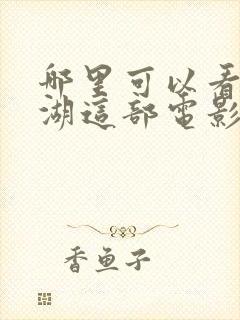 哪里可以看
湖這部電影
香魚子